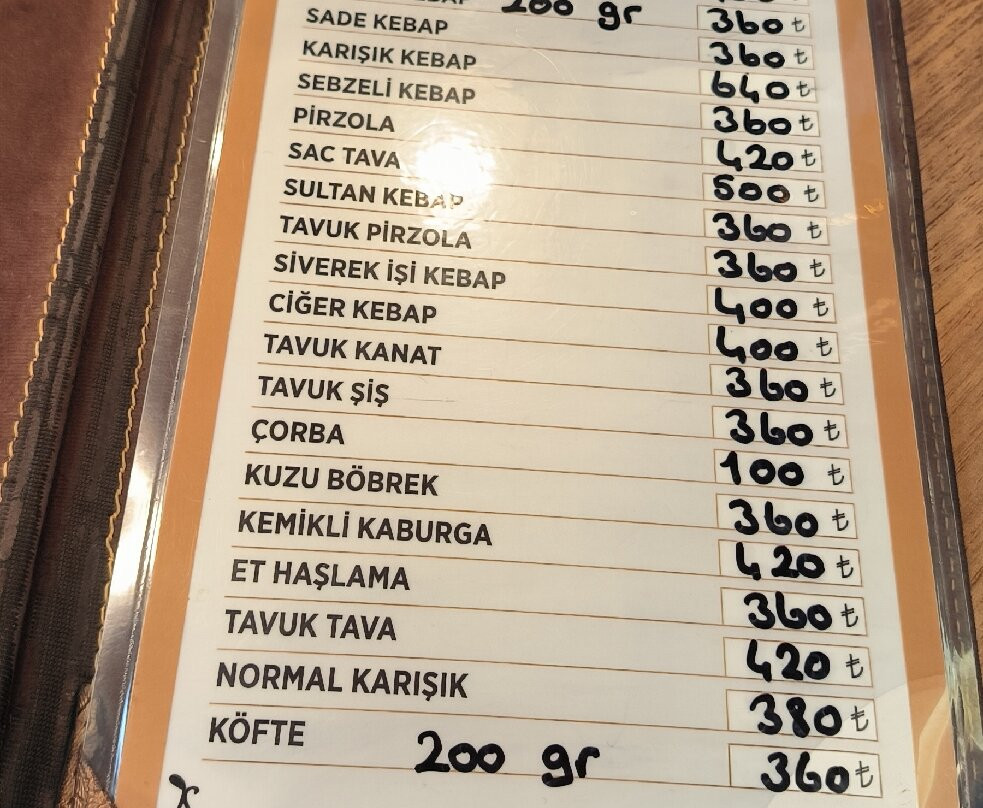 KEBAP 200 gr 360 ₺
SADE KEBAP 360 ₺
KARIŞIK KEBAP 640 ₺
SEBZELİ KEBAP 360 ₺
PİRZOLA 420 ₺
SAC TAVA 500 ₺
SULTAN KEBAP 360 ₺
TAVUK PİRZOLA 360 ₺
SİVEREK İŞİ KEBAP 400 ₺
CİĞER KEBAP 400 ₺
TAVUK KANAT 360 ₺
TAVUK ŞİŞ 360 ₺
ÇORBA 100 ₺
KUZU BÖBREK 360 ₺
KEMİKLİ KABURGA 420 ₺
ET HAŞLAMA 360 ₺
TAVUK TAVA 420 ₺
NORMAL KARIŞIK 380 ₺
KÖFTE 200 gr 360 ₺